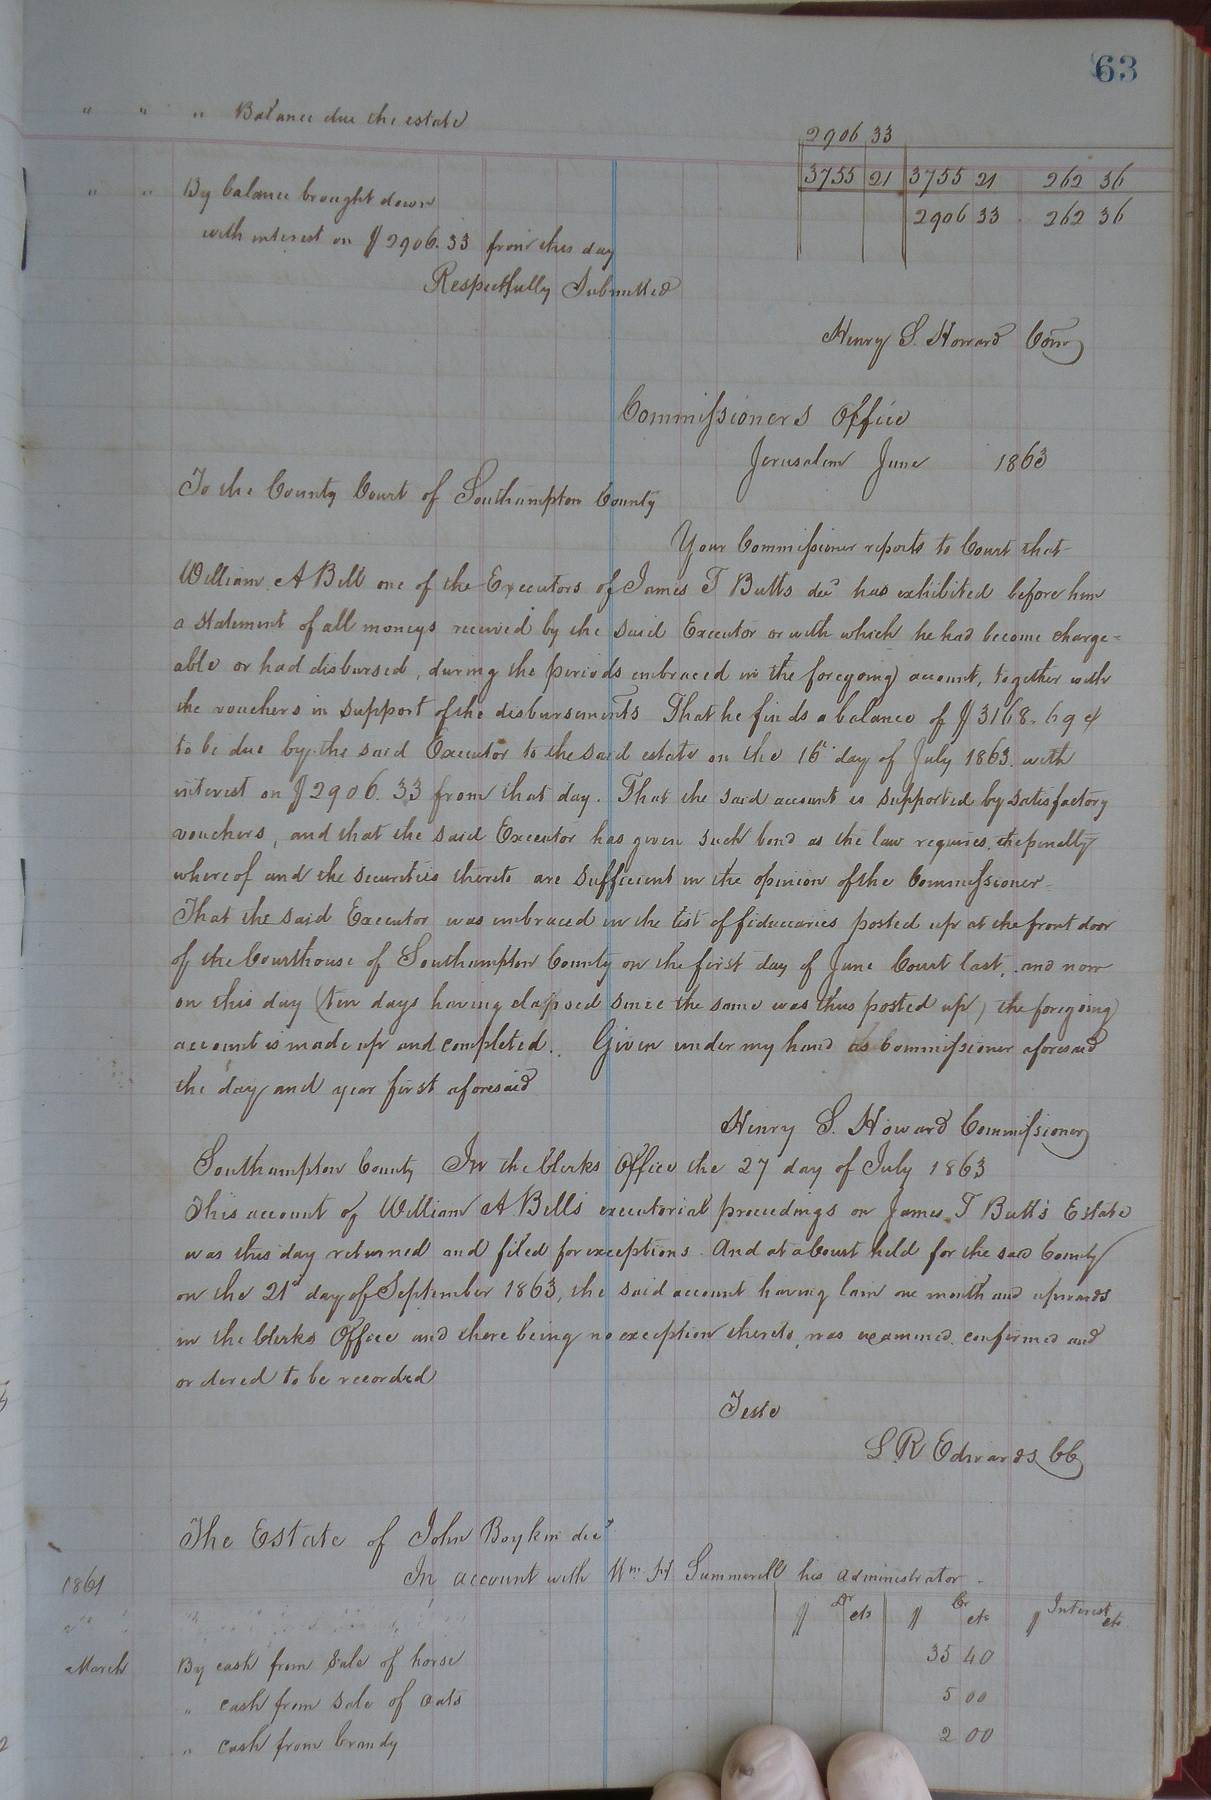 63
" " " Balance due the estate 2906 33
3755 21 3755 21 262 36
" " By balance brought down 2906 33 262 36
with interest on $2906.33 from this day
Respectfully Submitted
Henry S. Howard Comr
Commissioners Office
Jerusalem June 1863
To the County Court of Southampton County
Your Commissioner reports to Court that
William A Bell one of the Executors of James T Butts decd has exhibited before him
a statement of all moneys received by the said Executor or with which he had become charge=
able or had disbursed, during the periods embraced in the foregoing account, together with
the vouchers in support of the disbursements That he finds a balance of $3168.69 cts
to be due by the said Executor to the said estate on the 16th day of July 1863. with
interest on $2906.33 from that day. That the said account is supported by satisfactory
vouchers, and that the said Executor has given such bond as the law requires, the penalty
whereof and the securities thereto are sufficient in the opinion of the Commissioner
That the said Executor was embraced in the list of fiduciaries posted up at the front door
of the Courthouse of Southampton County on the first day of June Court last, and now
on this day (ten days having elapsed since the same was thus posted up) the foregoing
account is made up and completed. Given under my hand as Commissioner aforesaid
the day and year first aforesaid
Henry S. Howard Commissioner
Southampton County In the Clerks Office the 27 day of July 1863
This account of William A Bells executorial proceedings on James T Butts Estate
was this day returned and filed for exceptions. And at a Court held for the said County
on the 21st day of September 1863, the said account having lain one month and upwards
in the Clerks Office and there being no exception thereto, was examined, confirmed and
ordered to be recorded
Teste
L R Edwards CC
The Estate of John Boykin decd
In account with Wm H Summerell his administrator
1861
$ Dr cts $ Cr cts $ Interest cts
March By cash from sale of horse 35 40
" cash from sale of oats 5 00
" cash from brandy 2 00